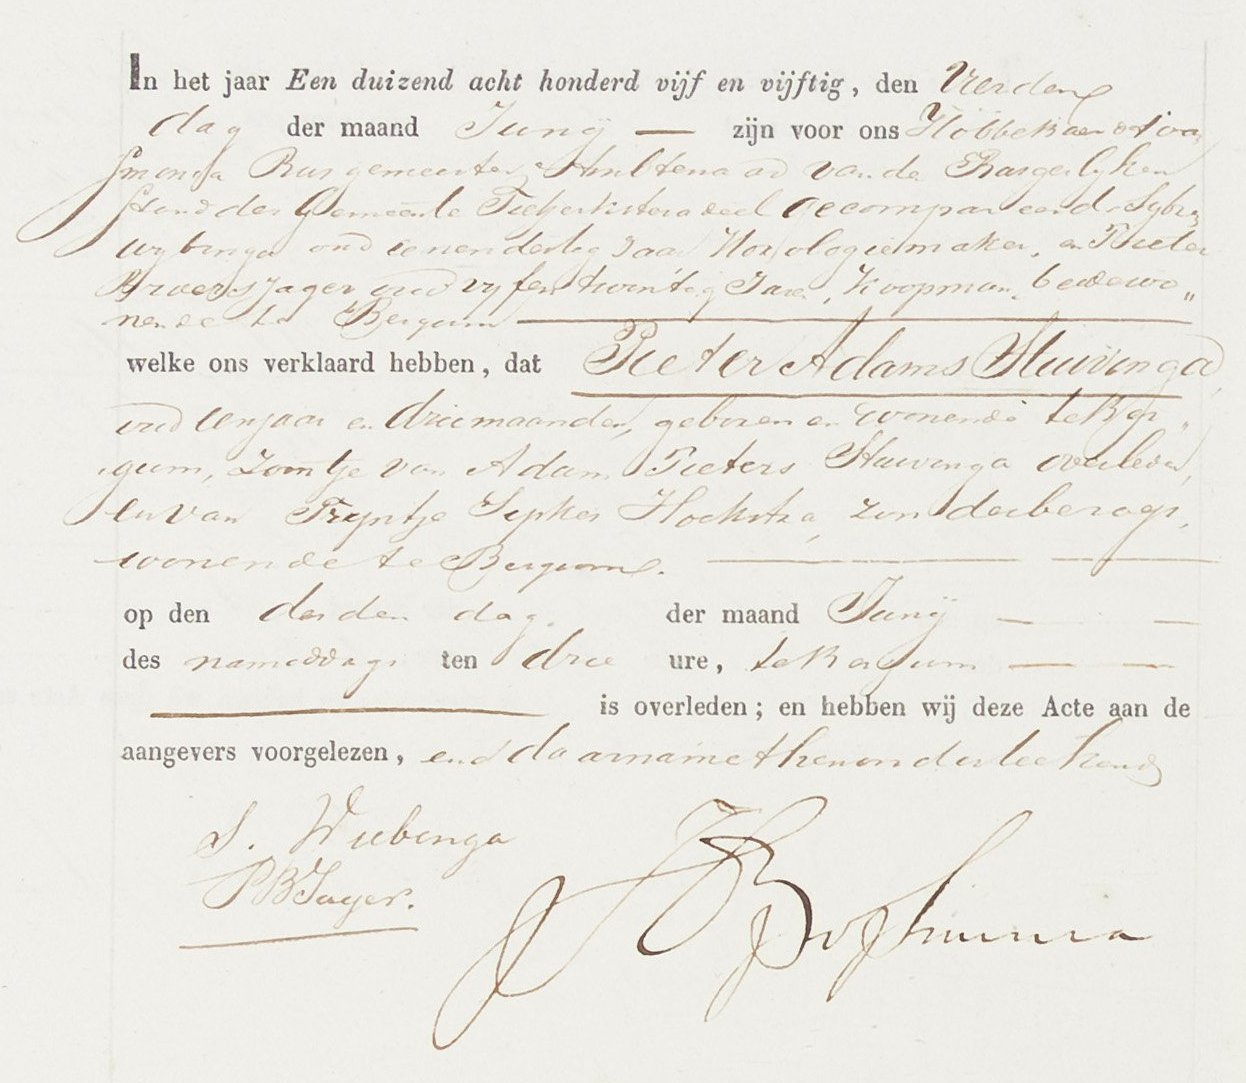 In het jaar Een duizend acht honderd vijf en vijftig, den vierden
dag der maand Junij zijn voor ons Hobbe Baerdt van
Sminia Burgemeester, Ambtenaar van den Burgerlijken
Stand der Gemeente Tietjerksteradeel gecompareerd Sybren
oud een en dertig Jaar Horologiemaker, en Pieter
Broers Jager oud vyf en twintig Jaren, Koopman, beide wo„
nende te Bergum
welke ons verklaard hebben, dat Pieter Adams Stuivinga,
oud een jaar en drie maanden, geboren en wonende te Ber„
gum, zoontje van Adam Pieters Stuivinga overleden,
en van Tryntje Sipkes Hoekstra, zonder beroep,
wonende te Bergum.
op den derden dag der maand Junij
des namiddags ten drie ure, te Bergum
is overleden; en hebben wij deze Acte aan de
aangevers voorgelezen, en daarna met hen onderteekend
S. Wiebinga
PB Jager.